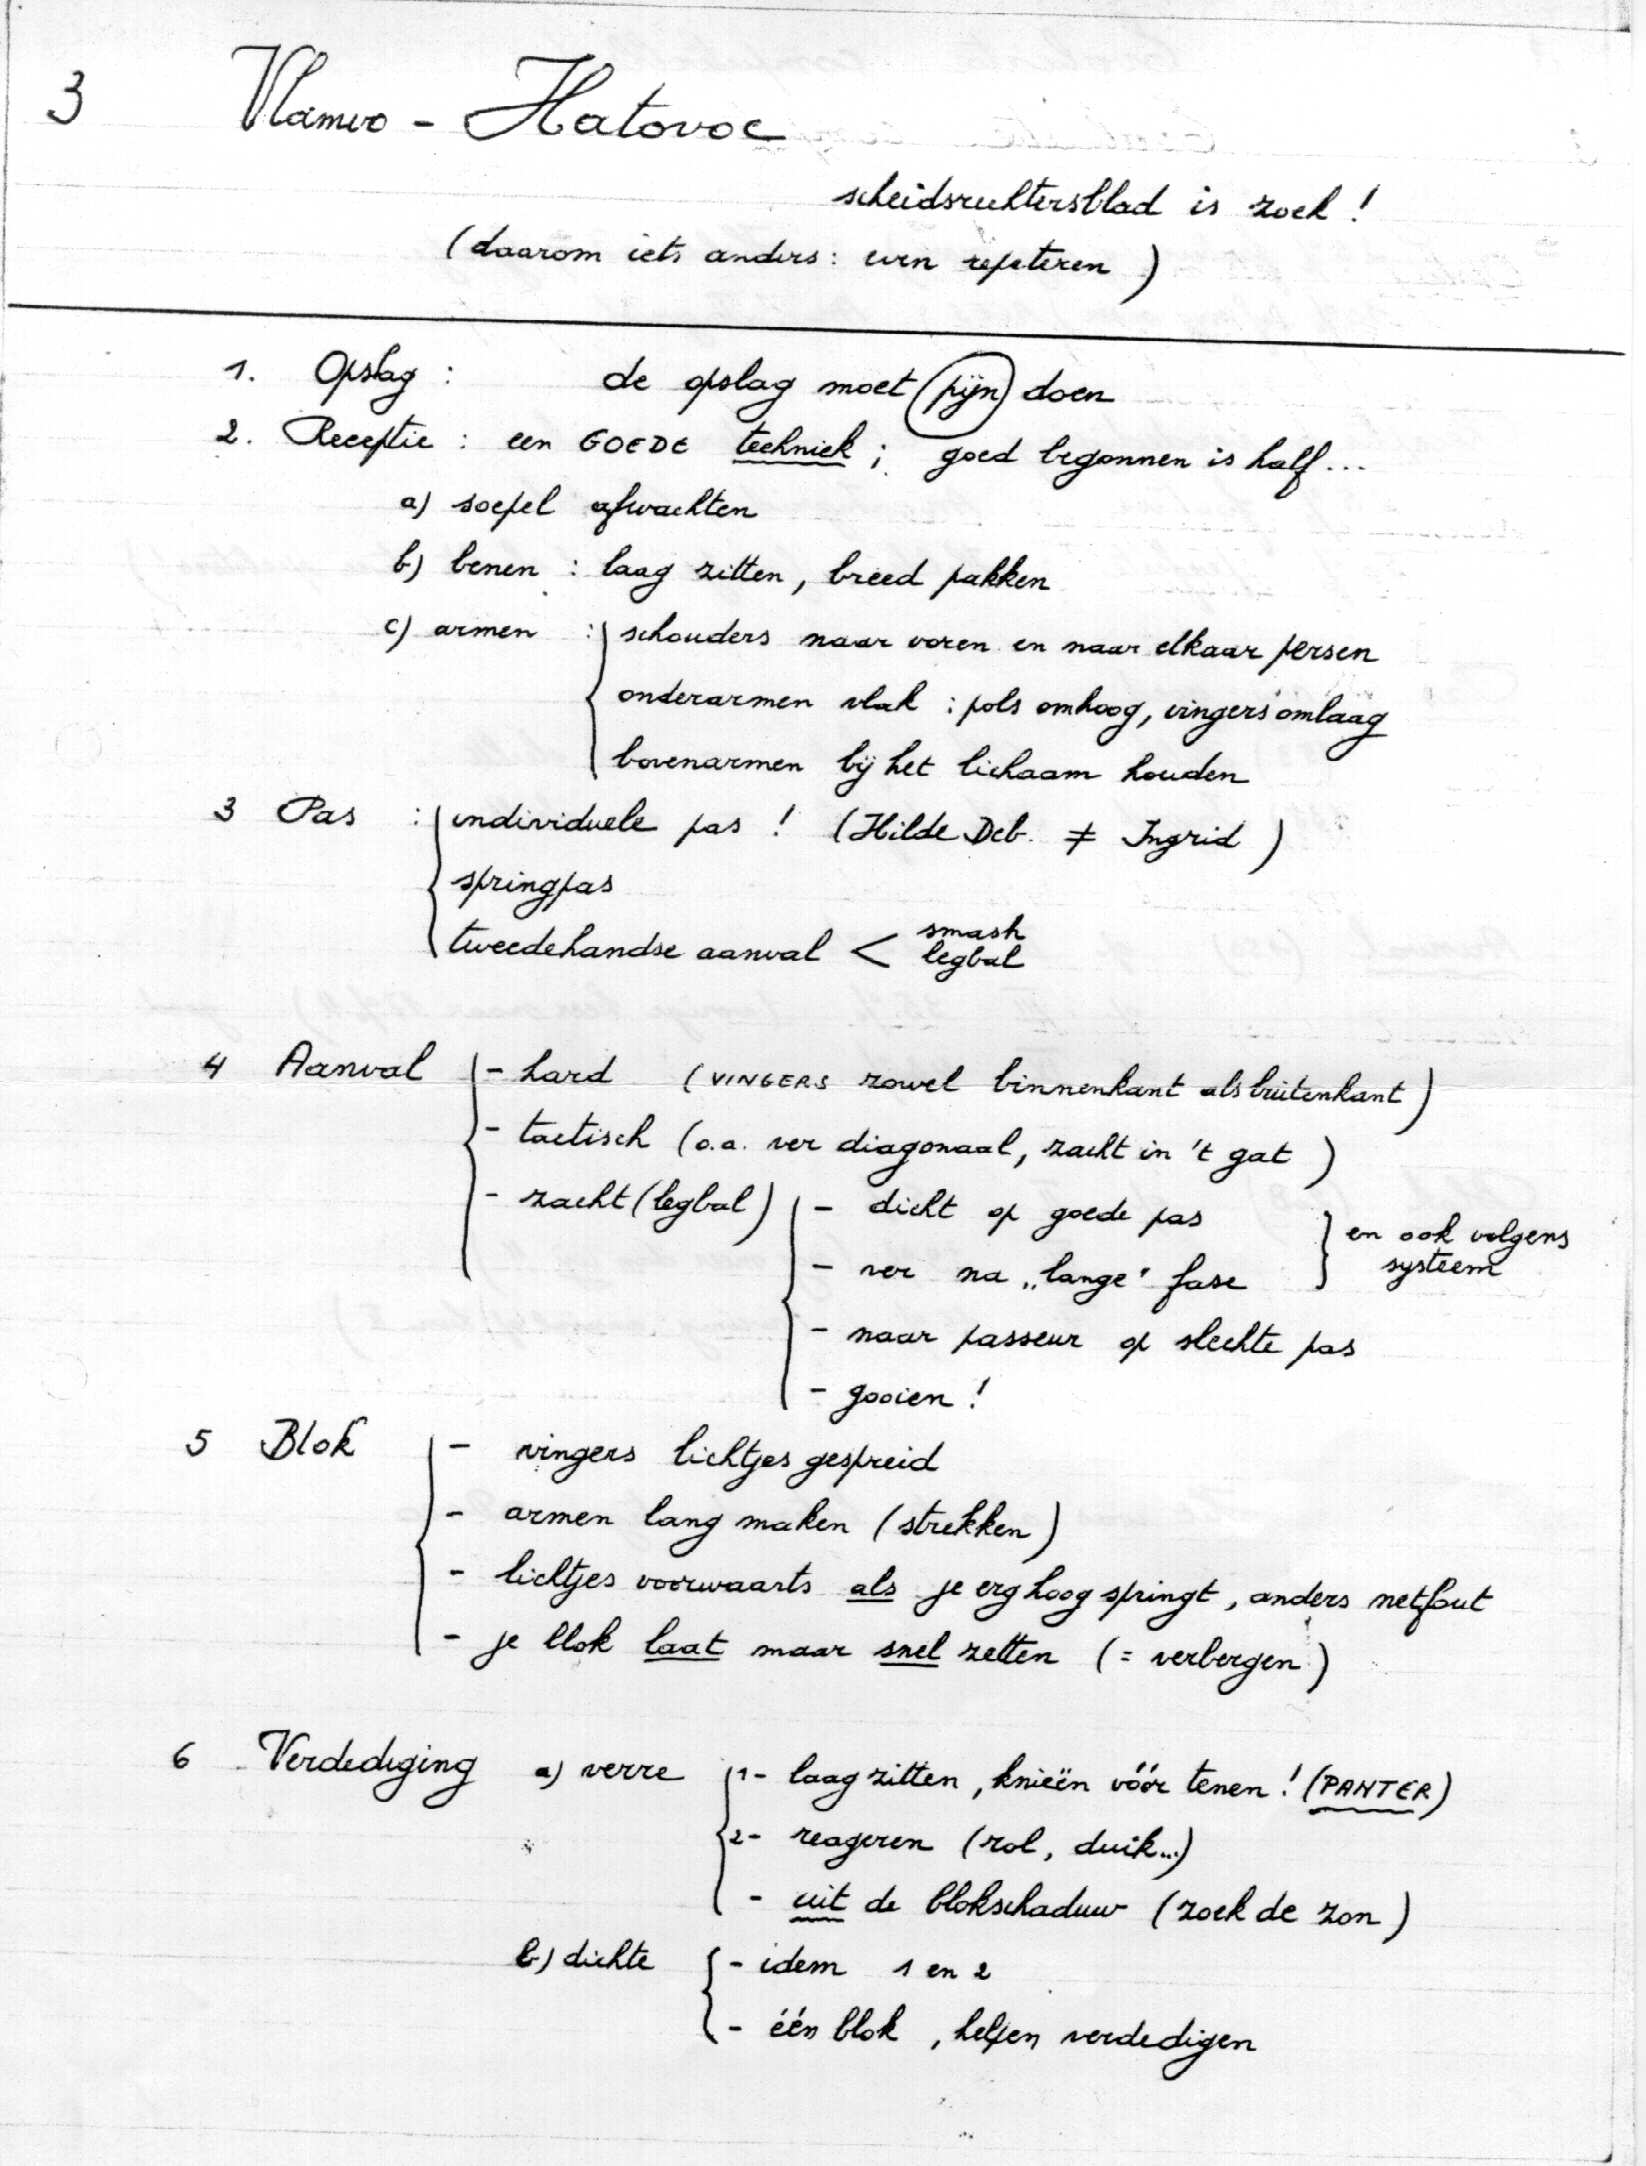 3 Vlamvo - Hatovoc
scheidsrechtersblad is zoek !
(daarom iets anders : even repeteren )
1. Opslag : de opslag moet pijn doen
2. Receptie : een GOEDE techniek ; goed begonnen is half ...
a) soepel afwachten
b) benen : laag zitten, breed pakken
c) armen : schouders naar voren en naar elkaar persen
onderarmen vlak : pols omhoog, vingers omlaag
bovenarmen bij het lichaam houden
3 Pas : individuele pas ! (Hilde Deb. ≠ Ingrid )
springpas
tweedehandse aanval < smash
legbal
4 Aanval - hard (VINGERS zowel binnenkant als buitenkant)
- tactisch (o.a. ver diagonaal, zacht in 't gat )
- zacht (legbal) - dicht op goede pas
- ver na „lange" fase } en ook volgens
systeem
- naar passeur op slechte pas
- gooien !
5 Blok - vingers lichtjes gespreid
- armen lang maken (strekken)
- lichtjes voorwaarts als je erg hoog springt, anders netfout
- je blok laat maar snel zetten (= verbergen)
6 Verdediging a) verre 1- laag zitten, knieën vóór tenen ! (PANTER)
2- reageren (rol, duik...)
- uit de blokschaduw (zoek de zon)
b) dichte - idem 1 en 2
- één blok, helpen verdedigen